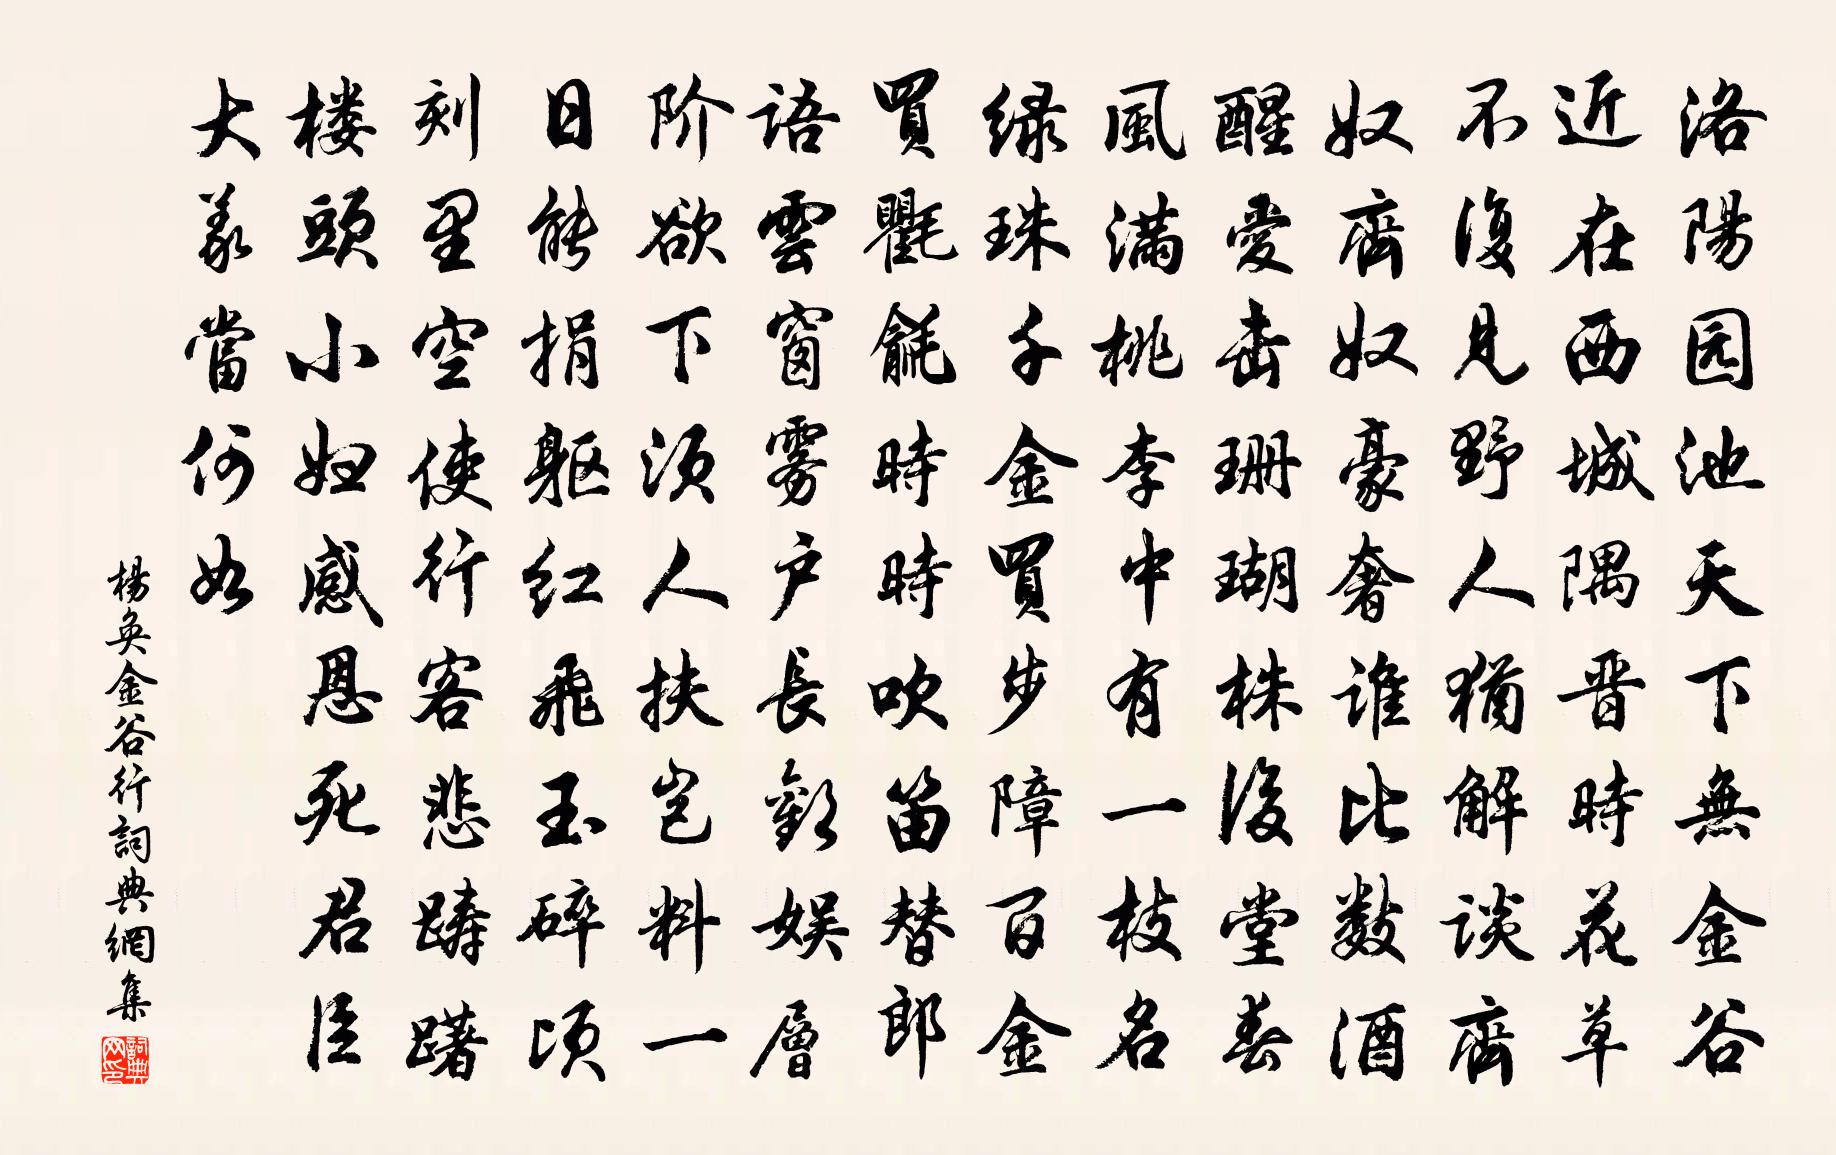 洛陽园池天下無金谷
近在西城隅晋時花草
不復見野人猶解談齊
奴齊奴豪奢谁比数酒
醒爱击珊瑚株後堂春
風满桃李中有一枝名
绿珠千金買步障百金
買氍毹時時吹笛替郎
語雲窗雾户長歡娱層
阶欲下须人扶岂料一
日能捐躯红飛玉碎顷
刻里空使行客悲踌躇
楼頭小妇感恩死君臣
大義當何如
楊奂金谷行詞典網集
詞典网印